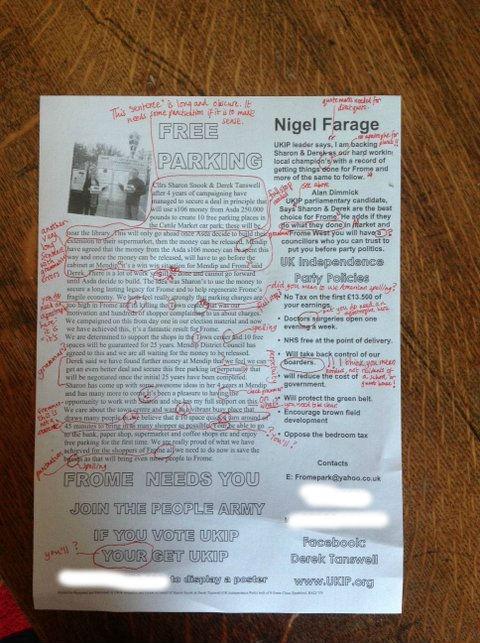 This "sentence" is long and obscure. It
needs some punctuation if it is to make
sense.
FREE
PARKING
Cllrs Sharon Snook & Derek Tanswell
after 4 years of campaigning have
managed to secure a deal in principle that
will use s106 money from Asda 250,000
pounds to create 10 free parking places in
the Cattle Market car park; these will be
near the library. This will only go ahead once Asda decide to build their
extension to their supermarket, then the money can be released. Mendip
have agreed that the money from the Asda s106 money can be spent this
way and once the money can be released, will have to go before the
cabinet at Mendip. It's a win win situation for Mendip and Frome said
Derek. There is a lot of work done and cannot go forward
until Asda decide to build. The idea was Sharon's to use the money to
secure a long lasting legacy for Frome and to help regenerate Frome's
fragile economy. We both feel really strongly that parking charges are
too high in Frome and its killing the Town centre that was our
motivation and hundreds of shopper complaining to us about charges.
We campaigned on this from day one in our election material and now
we have achieved this, it's a fantastic result for Frome.
We are determined to support the shops in the Town center and 10 free
spaces will be guaranteed for 25 years. Mendip District Council has
agreed to this and we are all waiting for the money to be released.
Derek said we have found further money at Mendip that we feel we can
get an even better deal and secure this free parking in perpetually that
will be negotiated once the initial 25 years have been completed.
Sharon has come up with some awesome ideas in her 4 years at Mendip
and has many more to come it's been a pleasure to having the
opportunity to work with Sharon and she has my full support on this
We care about the town centre and want a vibrant busy place that
draws many people. We believe that a 10 space quick turn around at
45 minutes to bring in as many shopper as possible. You be able to go to
the bank, paper shop, supermarket and coffee shops etc and enjoy
free parking for the first time. We are really proud of what we have
achieved for the shoppers of Frome all we need to do now is save the
as that will bring even more people to Frome.
grammar
spelling
punctuation
spelling
FROME NEEDS YOU
JOIN THE PEOPLE ARMY
IF YOU VOTE UKIP
you'll?
YOUR GET UKIP
to display a poster
quote marks needed for
direct quote.
Nigel Farage
no apostrophe for
plurals!!
UKIP leader says, I am backing
Sharon & Derek as our hard working
local champion's with a record of
getting things done for Frome and
more of the same to follow.
see above
Alan Dimmick
UKIP parliamentary candidate,
Says Sharon & Derek are the best
choice for Frome. He adds if they
do what they done in Market and
Frome West you will have 3
councillors who you can trust to
put you before party politics.
UK Independence
Party Policies
did you mean to use American spelling?
• No Tax on the first £13.500 of
your earnings.
• Doctors surgeries open one
evening a week.
• NHS free at the point of delivery.
• Will take back control of our
boarders.
• will reduce the cost of
government.
• Will protect the green belt.
• Encourage brown field
development
• Oppose the bedroom tax
Contacts
E: Fromepark@yahoo.co.uk
Facebook:
Derek Tanswell
www.UKIP.org